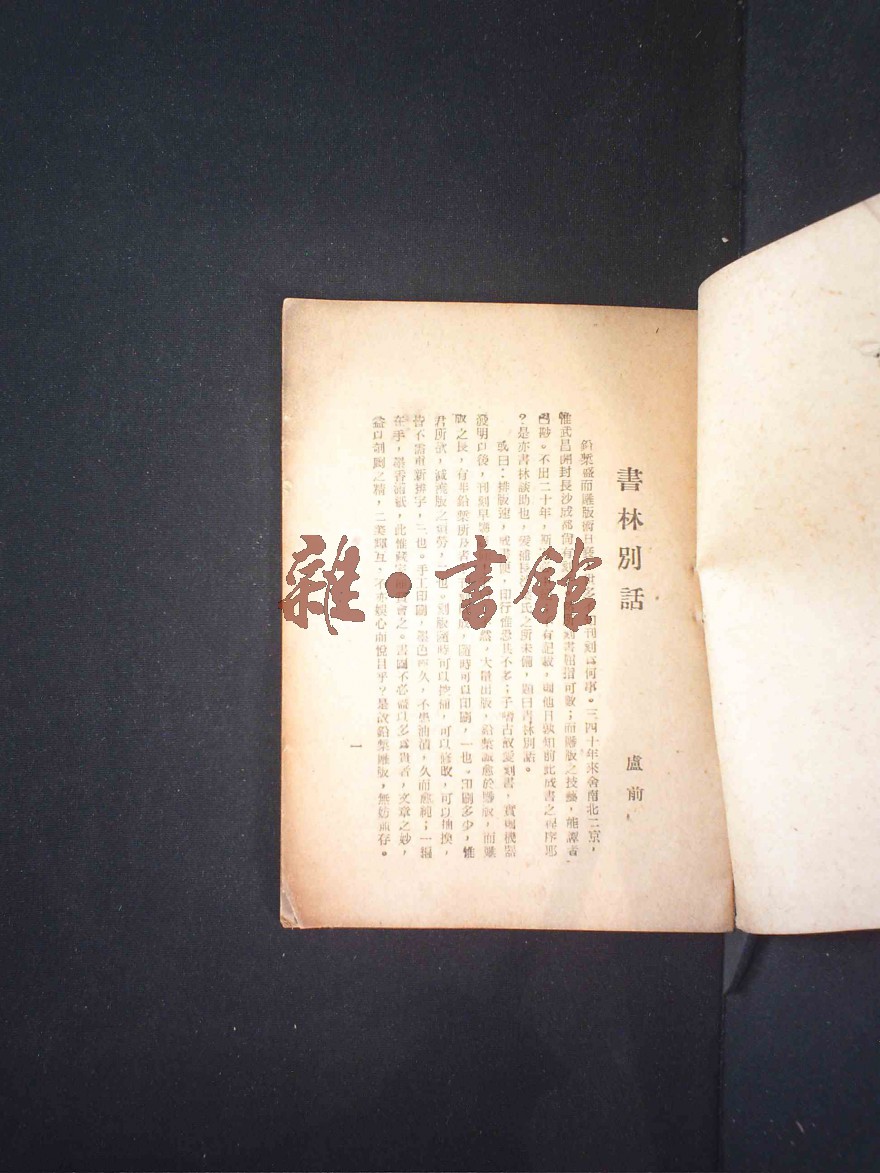 書林別話
盧前
鉛槧盛而雕版術日 刊刻爲何事。三四十年來舍南北二京,
惟武昌開封長沙成都尚有 刻書屈指可數;而雕版之技藝,能譚者
不出二十年, 有記載, 他日孰知前此成書之程序耶
?是亦書林談助也,爰補 氏之所未備,題曰書林別話。
或曰:排版速, 印行惟恐其不多;子嗜古故愛刻書,實則機器
發明以後,刊刻早 大量出版,鉛槧誠愈於雕版,而雕
版之長,有非鉛槧所及者 隨時可以印刷,一也。印刷多少,惟
君所欲,減 版之煩勞,二也。刻版隨時可以抄補,可以修改,可以抽換,
皆不需重新排字,三也。手工印刷,墨色 久,不患油漬,久而 ;一編
在手,墨香 紙,此惟 會之。書固不必盡以多爲貴者,文章之妙,
益以剞劂之精,二美輝互,不亦娛心而悅目乎?是故鉛槧雕版,無妨並存。
一
雜·書館